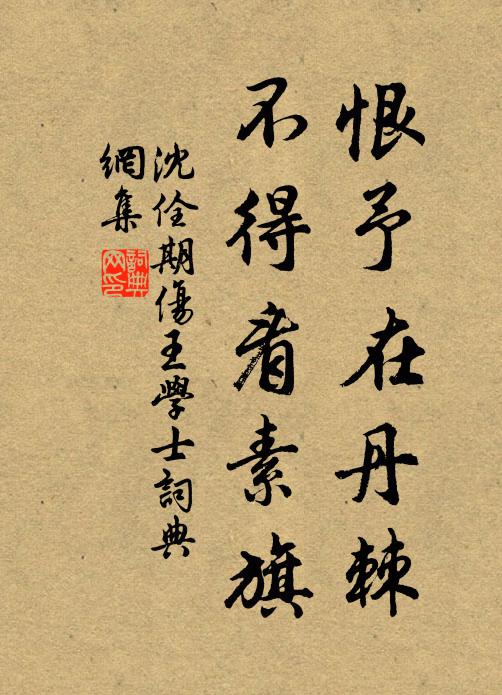 恨予在丹棘
不得看素旗
沈佺期傷王學士詞典
網集
詞典網印